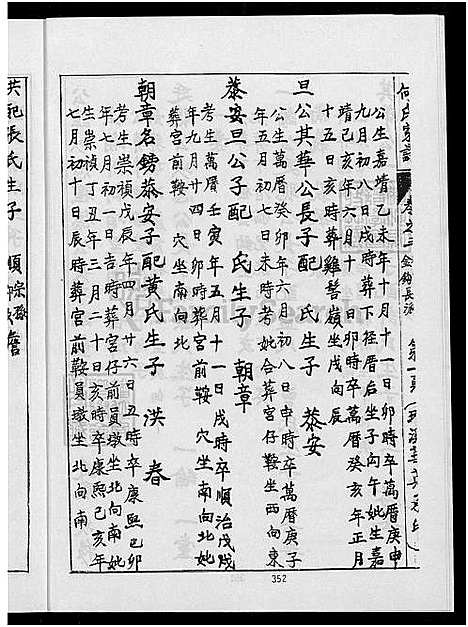 何氏家譜 卷之二 金鈎長派
公生嘉靖乙未年十月十一日卯時卒萬曆庚申
九月初八日戌時葬下徑厝后坐子向午妣生嘉
靖己亥年六月十 日卯時卒萬曆癸亥年正月
十五日亥時葬雞髻嶺坐戌向辰
旦公其華公長子配 氏生子 恭安
公生萬曆癸卯年六月初八日申時卒萬曆庚子
年五月初七日未時考妣合葬宮仔鞍坐西向東
恭安旦公子配 氏生子 朝章
考生萬曆壬寅年五月十一日戌時卒順治戊戌
年九月廿四日卯時葬宮前鞍 穴坐南向北妣
葬宮前鞍 穴坐南向北
朝章名鎊恭安子配黃氏生子 洪 春
考生崇禎戊辰年四月廿六日丑時卒康熙己卯
年七月初一日吉時葬宮仔前員墩坐北向南妣
生崇禎丁丑年三月二十日亥時卒康熙己亥年
七月初十日辰時葬宮前鞍員墩坐北向南
洪 配張氏生子 順
352